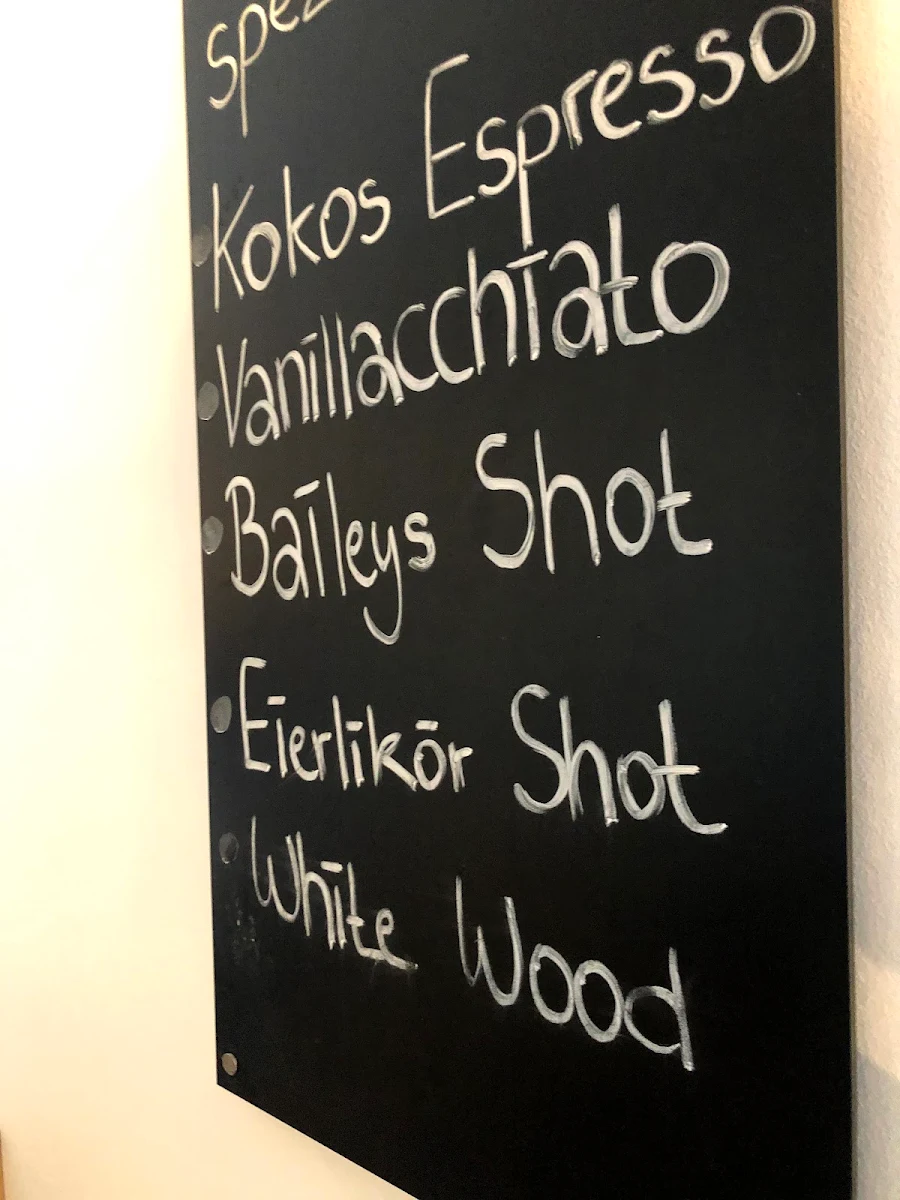 Kokos Espresso
Vanillacchiato
Baileys Shot
Eierlikör Shot
White Wood